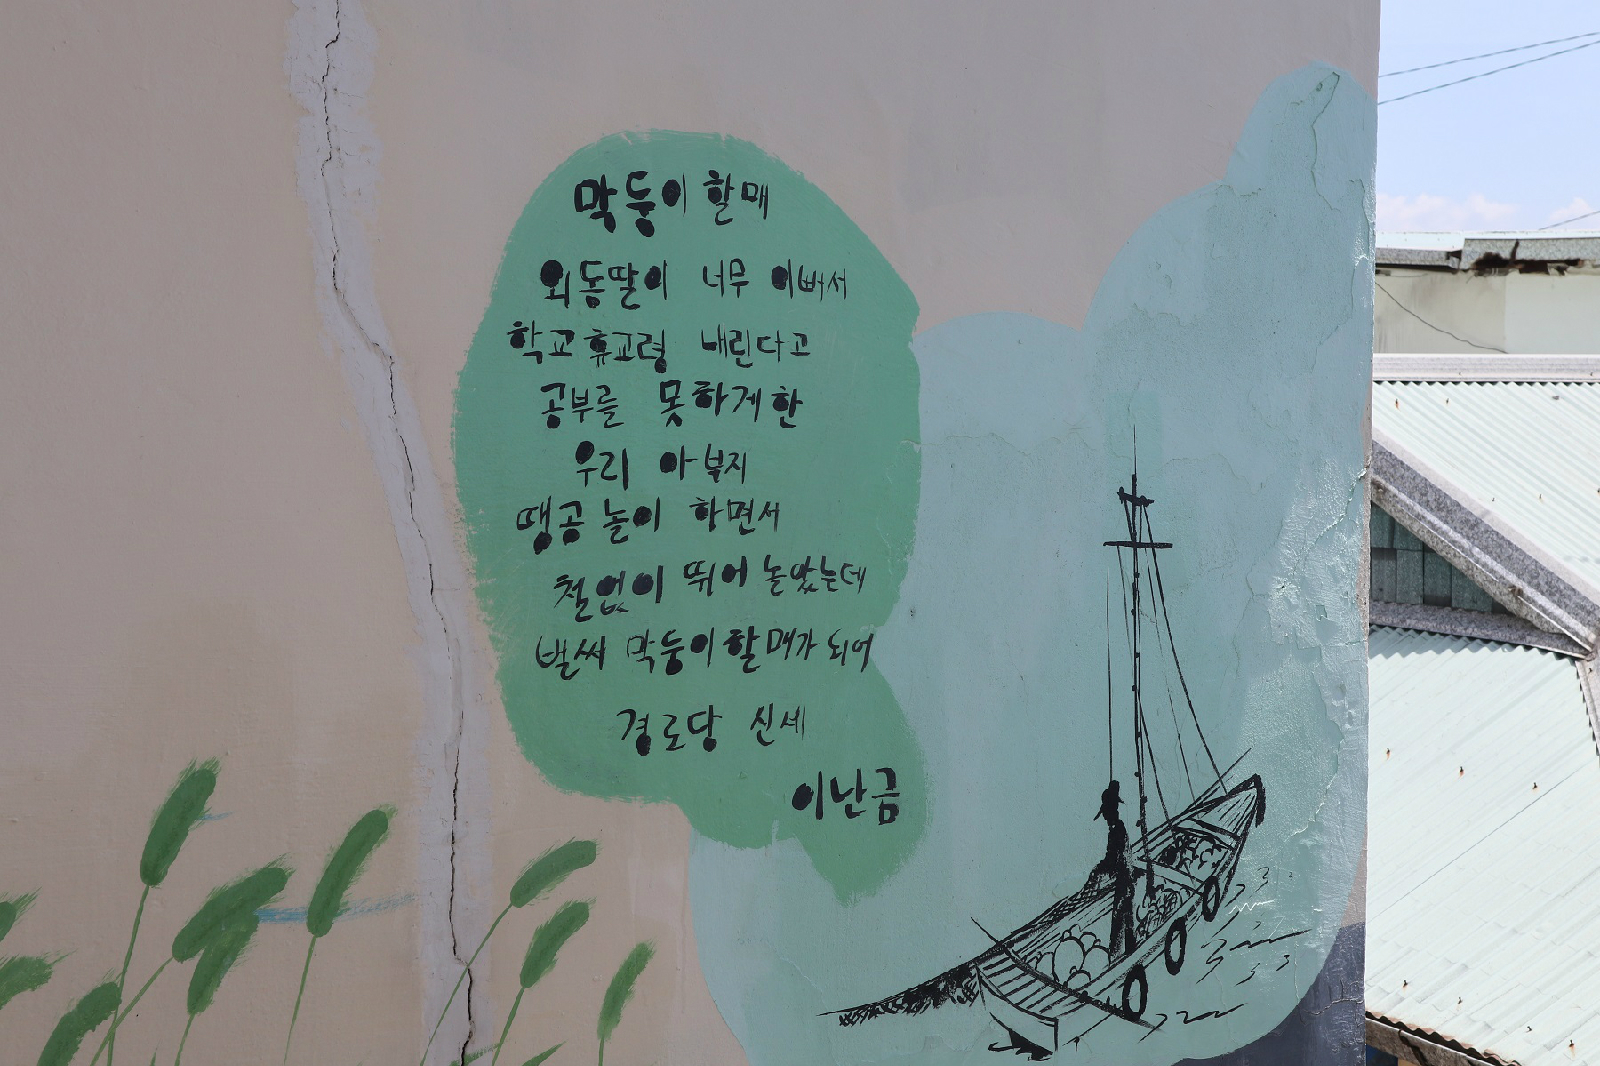 막둥이 할매
외동딸이 너무 이뻐서
학교 휴교령 내린다고
공부를 못하게 한
우리 아부지
땡공 놀이 하면서
철없이 뛰어 놀았는데
벌써 막둥이 할매가 되어
경로당 신세
이난금